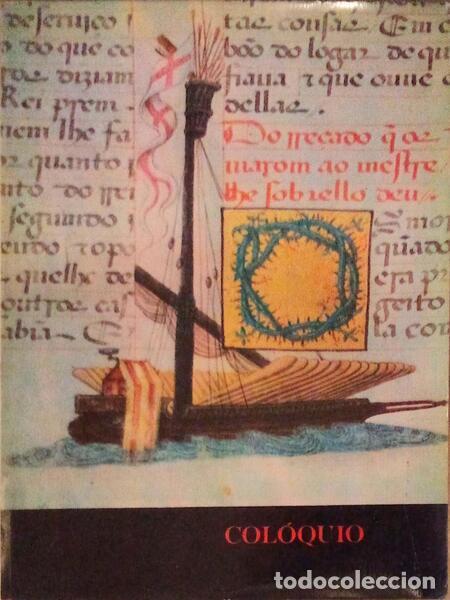 de serviço
do que co
rde diziam
Rei prem
nem lhe fa
or quanto
nto do rei
segundo
endo topo
quelhe de
outroe cas
abia
tae cousae. Em c
bõo do logar de qu
fiaua z que ouve c
dellae.
Do rrecado q̃ oe
marom ao mestre
lhe sobrello deu
mor
quãdo
era pr
geito
la con
COLÓQUIO
todocoleccion